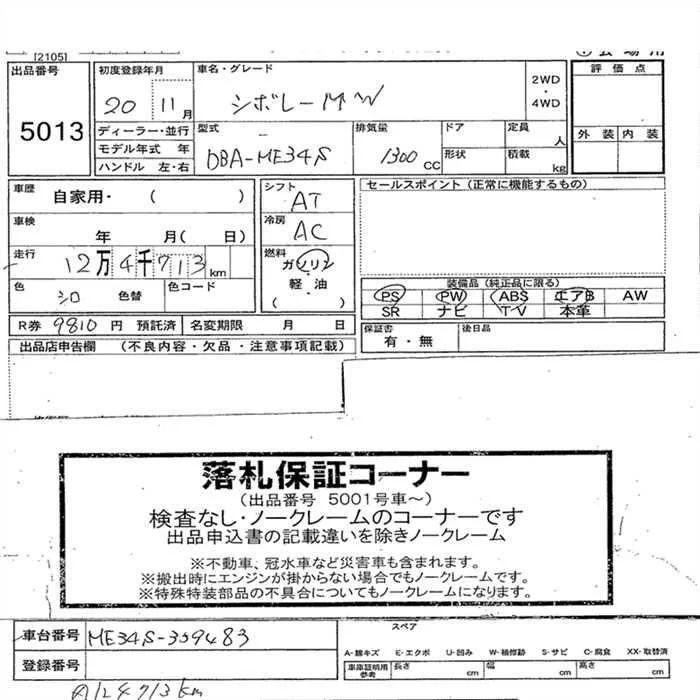 [2105]
出品番号 初度登録年月 車名・グレード 評価点
5013 20 11月 シボレーMW 2WD・4WD
ディーラー・並行 型式 排気量 ドア 定員 人 外装 内装
モデル年式 年 DBA-ME34S 1300cc 形状 積載 kg
ハンドル 左・右
車歴 自家用・( ) シフト AT セールスポイント(正常に機能するもの)
車検 年 月( 日) 冷房 AC
走行 12万4千713km 燃料 ガソリン・軽油( )
色 シロ 色替 色コード 装備品(純正品に限る)
PS PW ABS エアB AW
SR ナビ TV 本革
R券 9810円 預託済 名変期限 月 日 保証書 有・無 後日品
出品店申告欄 (不良内容・欠品・注意事項記載)
落札保証コーナー
(出品番号 5001号車~)
検査なし・ノークレームのコーナーです
出品申込書の記載違いを除きノークレーム
※不動車、冠水車など災害車も含まれます。
※搬出時にエンジンが掛からない場合でもノークレームです。
※特殊特装部品の不具合についてもノークレームになります。
車台番号 ME34S-359483 スペア
A-線キズ E-エクボ U-凹み W-補修跡 S-サビ C-腐食 XX-取替済
登録番号 車庫証明用参考 長さ cm 幅 cm 高さ cm
124713km